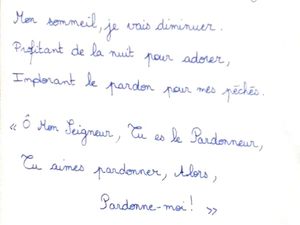 Mon sommeil, je vais diminuer.
Profitant de la nuit pour adorer,
Implorant le pardon pour mes péchés.
« Ô Mon Seigneur, Tu es le Pardonneur,
Tu aimes pardonner, Alors,
Pardonne-moi ! »